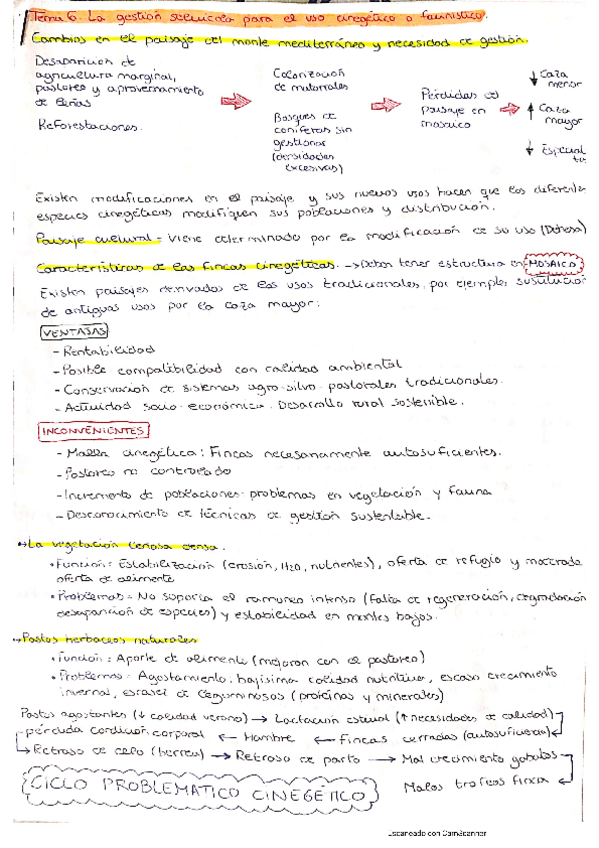 Tema 6. La gestión selvícola para el uso cinegético o faunístico.
Cambios en el paisaje del monte mediterráneo y necesidad de gestión.
Desaparición de
agricultura marginal,
pastoreo y aprovechamiento
de leñas
Reforestaciones.
Colonización
de matorrales
Bosques de
coníferas sin
gestionar
(densidades
excesivas)
Pérdidas del
paisaje en
mosaico
↓ Caza
menor
↑ Caza
mayor
↓ Especial
Existen modificaciones en el paisaje y sus nuevos usos hacen que las diferentes
especies cinegéticas modifiquen sus poblaciones y distribución.
Paisaje cultural = Viene determinado por la modificación de su uso (Dehesa)
Características de las fincas cinegéticas. → Deben tener estructura en MOSAICO
Existen paisajes derivados de los usos tradicionales, por ejemplo sustitución
de antiguos usos por la caza mayor:
VENTAJAS
- Rentabilidad
- Posible compatibilidad con calidad ambiental
- Conservación de sistemas agro-silvo-pastorales tradicionales.
- Actividad socio-económica. Desarrollo rural sostenible.
INCONVENIENTES
- Malla cinegética: Fincas necesariamente autosuficientes.
- Pastoreo no controlado
- Incremento de poblaciones: problemas en vegetación y fauna
- Desconocimiento de técnicas de gestión sustentable.
→ La vegetación leñosa densa.
• Función: Estabilización (erosión, H2O, nutrientes), oferta de refugio y moderada
oferta de alimente
• Problemas = No soporta el ramoneo intenso (falta de regeneración, degradación
desaparición de especies) y estabilidad en montes bajos.
→ Pastos herbáceos naturales
• Función: Aporte de alimente (mejoran con el pastoreo)
• Problemas: Agostamiento, bajísima calidad nutritiva, escaso crecimiento
invernal, escasez de leguminosas (proteínas y minerales)
Pastos agostantes (↓ calidad verano) → Lactación estival (↑ necesidades de calidad)
pérdida condición corporal ← Hambre ← Fincas cerradas (autosuficiencia)
→ Retraso de celo (berrea) → Retraso de parto → Mal crecimiento gabatos
Malos trofeos finca
CICLO PROBLEMATICO CINEGETICO
Escaneado con CamScanner